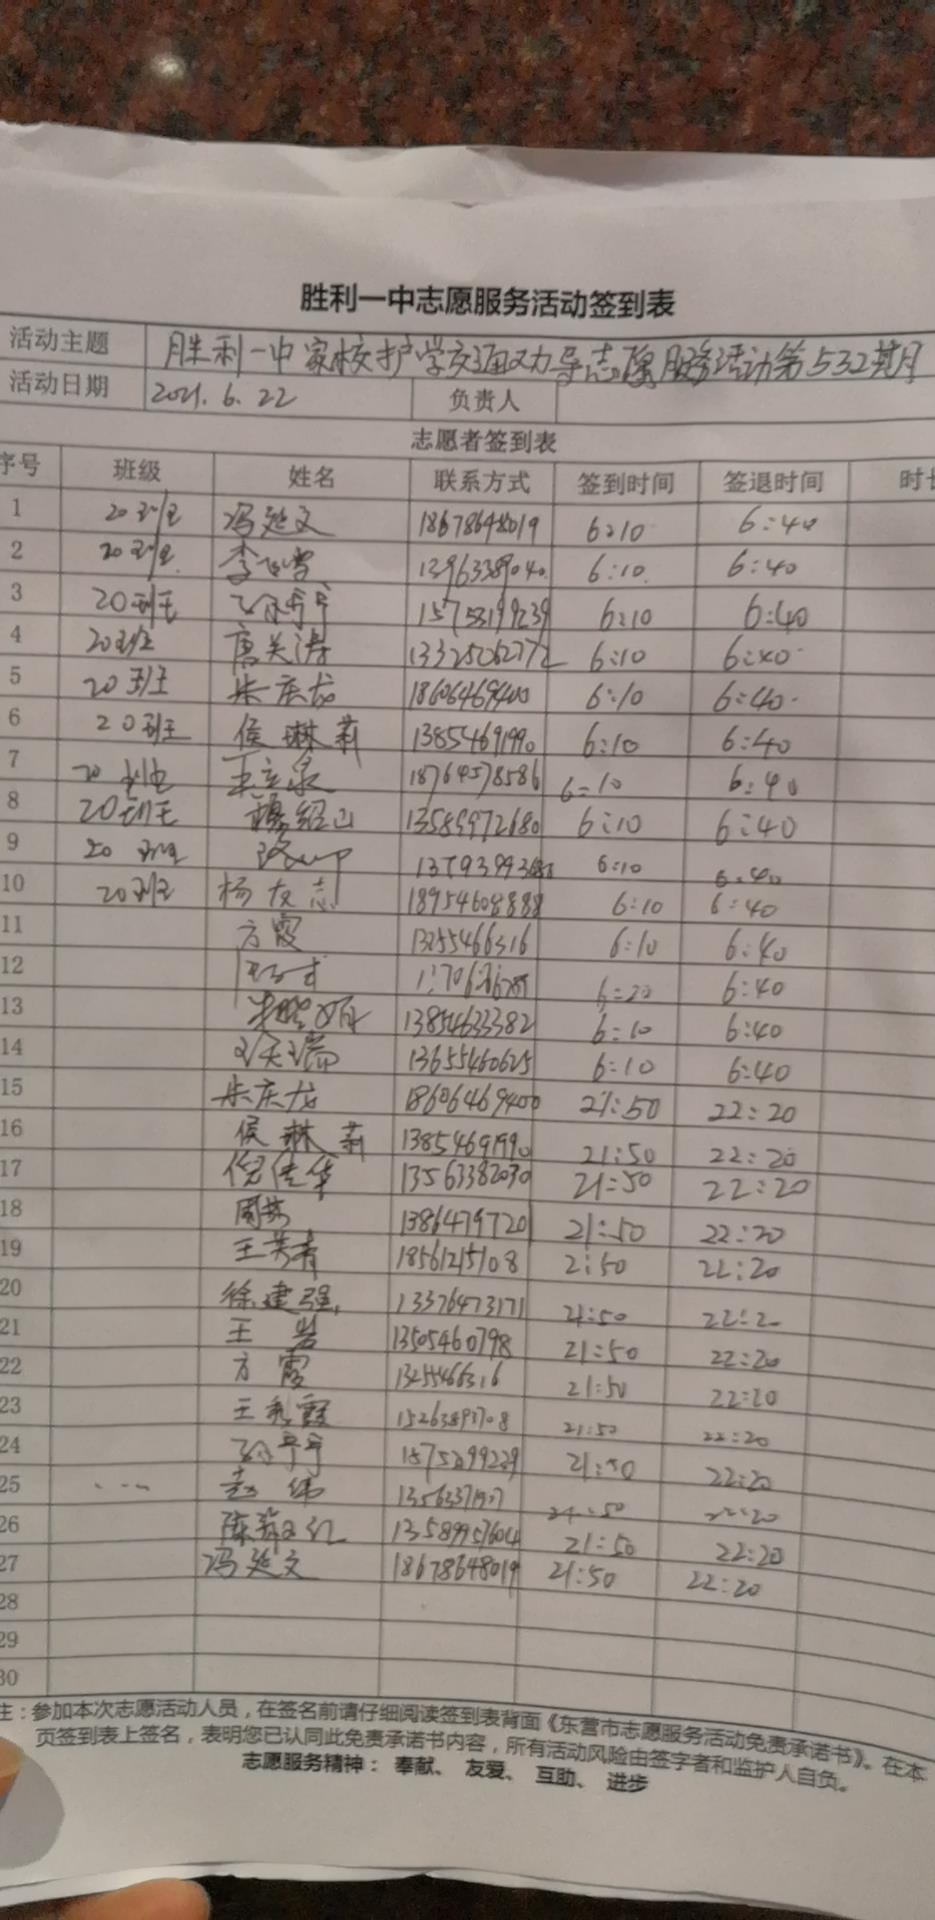 胜利一中志愿服务活动签到表
活动主题 胜利一中家校护学交通劝导志愿服务活动第532期
活动日期 2021.6.22 负责人
志愿者签到表
序号 班级 姓名 联系方式 签到时间 签退时间 时长
1 20班 冯延文 18678648019 6:10 6:40
2 20班 李 13963389040 6:10 6:40
3 20班 6:10 6:40
4 20班 唐关涛 13325062772 6:10 6:40
5 20班 朱庆龙 18606469400 6:10 6:40
6 20班 侯琳莉 13854691990 6:10 6:40
7 20班 王立泉 18764578586 6:10 6:40
8 20班 穆经山 13589972680 6:10 6:40
9 20班 6:10 6:40
10 20班 杨友志 18954608888 6:10 6:40
11 方霞 13255466316 6:10 6:40
12 6:20 6:40
13 13854633382 6:10 6:40
14 13655460625 6:10 6:40
15 朱庆龙 18606469400 21:50 22:20
16 侯琳莉 13854691990 21:50 22:20
17 倪佳华 13563382030 21:50 22:20
18 周 13864797201 21:50 22:20
19 王英青 18561215108 2:50 22:20
20 徐建强 13376473171 21:50 22:2
21 王岩 13505460798 21:50 22:20
22 方霞 13255466316 21:50 22:20
23 王秀霞 21:50 22:20
24 21:50 22:20
25 赵伟 21:50 22:20
26 陈 13589957604 21:50 22:20
27 冯延文 18678648019 21:50 22:20
28
29
30
注：参加本次志愿活动人员，在签名前请仔细阅读签到表背面《东营市志愿服务活动免责承诺书》。在本
页签到表上签名，表明您已认同此免责承诺书内容，所有活动风险由签字者和监护人自负。
志愿服务精神：奉献、友爱、互助、进步